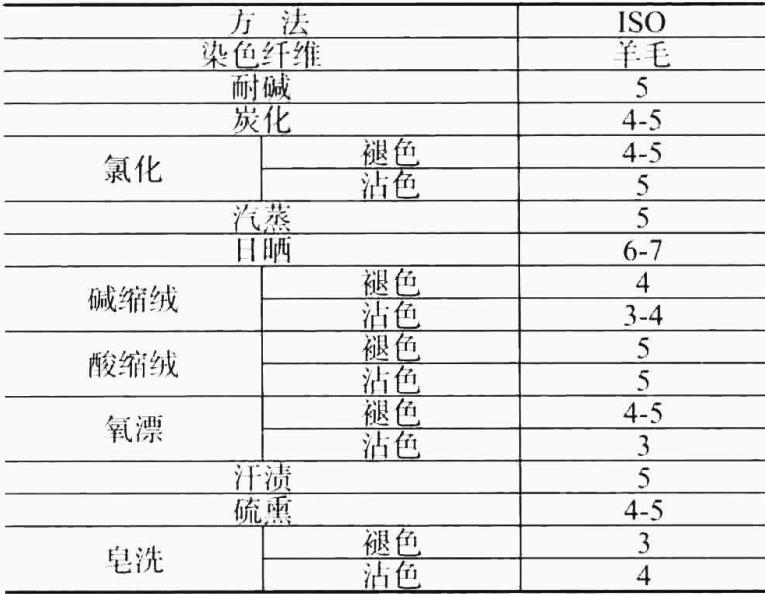 方 法 ISO
染色纤维 羊毛
耐碱 5
炭化 4-5
氯化 褪色 4-5
沾色 5
汽蒸 5
日晒 6-7
碱缩绒 褪色 4
沾色 3-4
酸缩绒 褪色 5
沾色 5
氧漂 褪色 4-5
沾色 3
汗渍 5
硫熏 4-5
皂洗 褪色 3
沾色 4